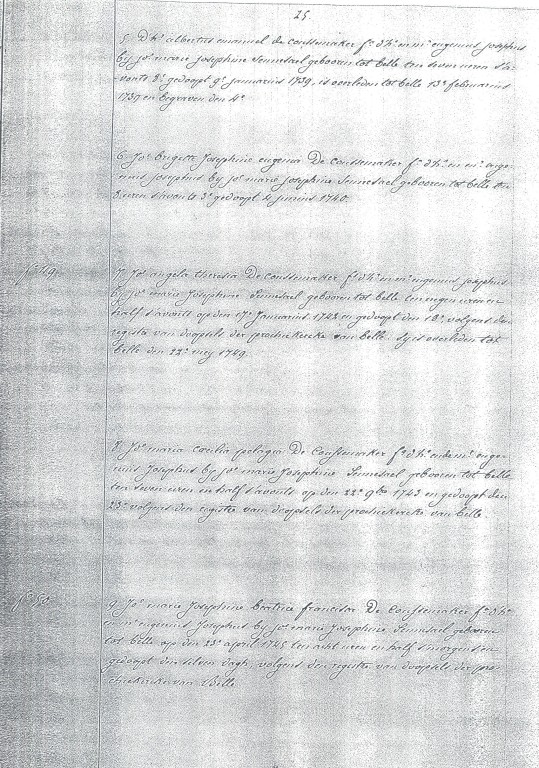 25.
5. D hr albertus emanuel de Coussemaker fs d'hr en mr eugenius josephus
by jor marie josephine Sennesael gebooren tot belle ten seven uren s'a-
vonts 8e gedoopt 9e januarius 1739, is overleden tot belle 13e februarius
1739 en begraven den 4e
6. Jor brigitte Josephine eugenia De Coussemaker fa d'hr en mr euge-
nius josephus by jor marie josephine Sennesael gebooren tot belle ten
seven s'avonts 3e gedoopt 4 junius 1740.
fo 49
7. Jor angela theresia De Coussemaker fa d'hr en mr eugenius josephus
by jor marie Josephine Sennesael gebooren tot belle ten negen uren en
half s'avonts op den 17e Januarius 1742 en gedoopt den 18e, volgens den
register van doopsels der prochiekercke van belle. Sy is overleden tot
belle den 22e mey 1749.
8. Jor maria cecilia pelagia De Coussemaker fa d'hr ende mr euge-
nius Josephus by jor marie Josephine Sennesael gebooren tot belle
ten seven uren en half s'avonts op den 22e 9bre 1743 en gedoopt den
23e volgens den register van doopsels der prochiekercke van belle.
fo 50
9. Jor marie Josephine beatrice francisca De Coussemaker fa d'hr
en mr eugenius Josephus by jor marie Josephine Sennesael gebooren
tot belle op den 23e april 1745 ten acht uren en half s'morgens en
gedoopt den selven dagh, volgens den register van doopsels der pro-
chiekercke van Belle.